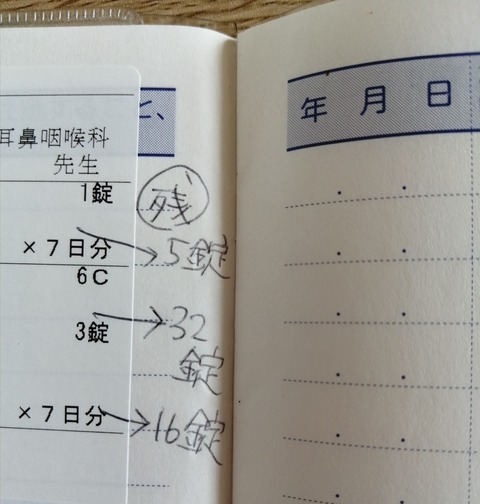 耳鼻咽喉科
先生
1錠
×7日分
6C
3錠
×7日分
残
5錠
32
錠
16錠
年 月 日